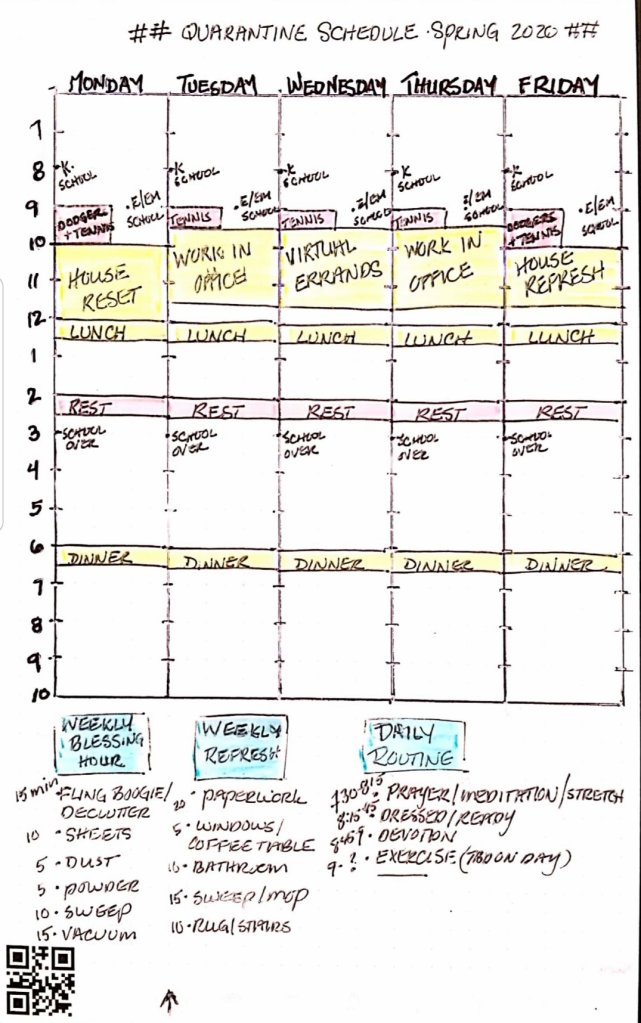 ## QUARANTINE SCHEDULE · SPRING 2020 ##
MONDAY TUESDAY WEDNESDAY THURSDAY FRIDAY
7
8 K K K K K
SCHOOL SCHOOL SCHOOL SCHOOL SCHOOL
9 DODGERS + TENNIS E/EM SCHOOL TENNIS E/EM SCHOOL TENNIS E/EM SCHOOL TENNIS E/EM SCHOOL DODGERS + TENNIS E/EM SCHOOL
10 WORK IN VIRTUAL WORK IN
HOUSE OFFICE ERRANDS OFFICE HOUSE
11 RESET REFRESH
12
LUNCH LUNCH LUNCH LUNCH LUNCH
1
2
REST REST REST REST REST
3 SCHOOL SCHOOL SCHOOL SCHOOL SCHOOL
OVER OVER OVER OVER OVER
4
5
6
DINNER DINNER DINNER DINNER DINNER
7
8
9
10
WEEKLY
BLESSING
HOUR
15 min FLING BOOGIE/
DECLUTTER
10 · SHEETS
5 · DUST
5 · POWDER
10 · SWEEP
15 · VACUUM
WEEKLY
REFRESH
20 · PAPERWORK
5 · WINDOWS/
COFFEE TABLE
10 · BATHROOM
15 · SWEEP/MOP
10 · RUG/STAIRS
DAILY
ROUTINE
730-8:15 · PRAYER/MEDITATION/STRETCH
8:15-45 · DRESSED/READY
845-9 · DEVOTION
9-? · EXERCISE (TBD ON DAY)